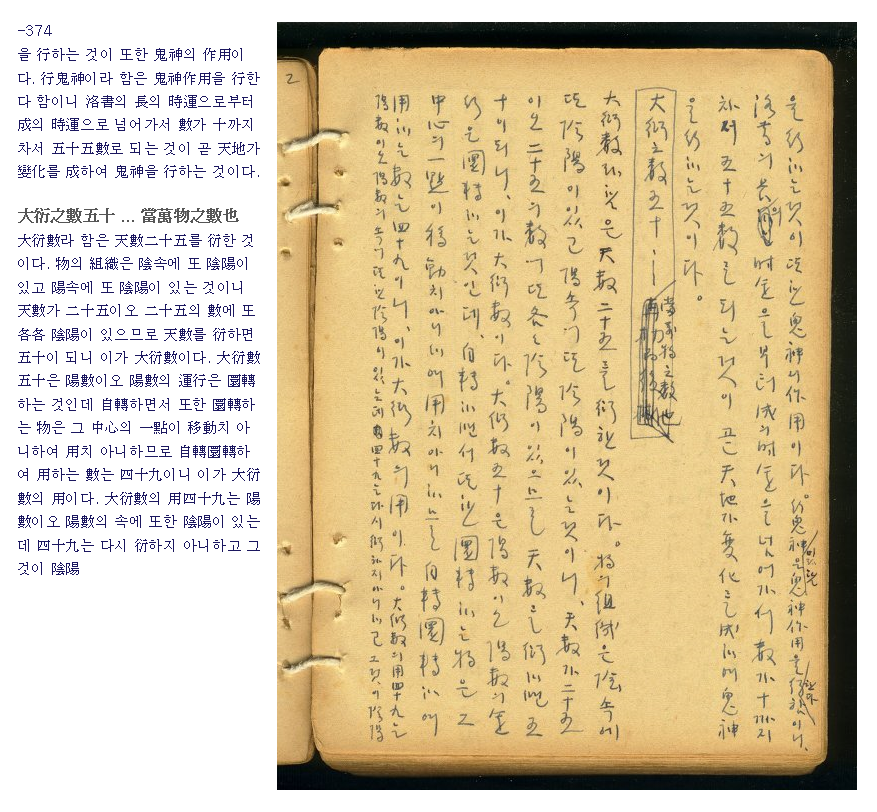 -374
을 行하는 것이 또한 鬼神의 作用이
다. 行鬼神이라 함은 鬼神作用을 行한
다 함이니 洛書의 長의 時運으로부터
成의 時運으로 넘어가서 數가 十까지
차서 五十五數로 되는 것이 곧 天地가
變化를 成하여 鬼神을 行하는 것이다.
大衍之數五十 ... 當萬物之數也
大衍數라 함은 天數二十五를 衍한 것
이다. 物의 組織은 陰속에 또 陰陽이
있고 陽속에 또 陰陽이 있는 것이니
天數가 二十五이오 二十五의 數에 또
各各 陰陽이 있으므로 天數를 衍하면
五十이 되니 이가 大衍數이다. 大衍數
五十은 陽數이오 陽數의 運行은 圜轉
하는 것인데 自轉하면서 또한 圜轉하
는 物은 그 中心의 一點이 移動치 아
니하여 用치 아니하므로 自轉圜轉하
여 用하는 數는 四十九이니 이가 大衍
數의 用이다. 大衍數의 用四十九는 陽
數이오 陽數의 속에 또한 陰陽이 있는
데 四十九는 다시 衍하지 아니하고 그
것이 陰陽
2
을 行하는 것이 또한 鬼神의 作用이다。行鬼神이라 함은 鬼神作用을 行한다 함이니、
洛書의 長의 時運으로부터 成의 時運으로 넘어가서 數가 十까지
차서 五十五數로 되는 것이 곧 天地가 變化를 成하여 鬼神
을 行하는 것이다。
大衍之數五十 … 當萬物之數也
大衍數라 함은 天數二十五를 衍한 것이다。物의 組織은 陰속에
또 陰陽이 있고 陽속에 또 陰陽이 있는 것이니、天數가 二十五
이오 二十五의 數에 또 各各 陰陽이 있으므로 天數를 衍하면 五
十이 되니、이가 大衍數이다。大衍數五十은 陽數이오 陽數의 運
行은 圜轉하는 것인데、自轉하면서 또한 圜轉하는 物은 그
中心의 一點이 移動치 아니하여 用치 아니하므로 自轉圜轉하여
用하는 數는 四十九이니、이가 大衍數의 用이다。大衍數의 用四十九는
陽數이오 陽數의 속에 또한 陰陽이 있는데 四十九는 다시 衍하지 아니하고 그것이 陰陽